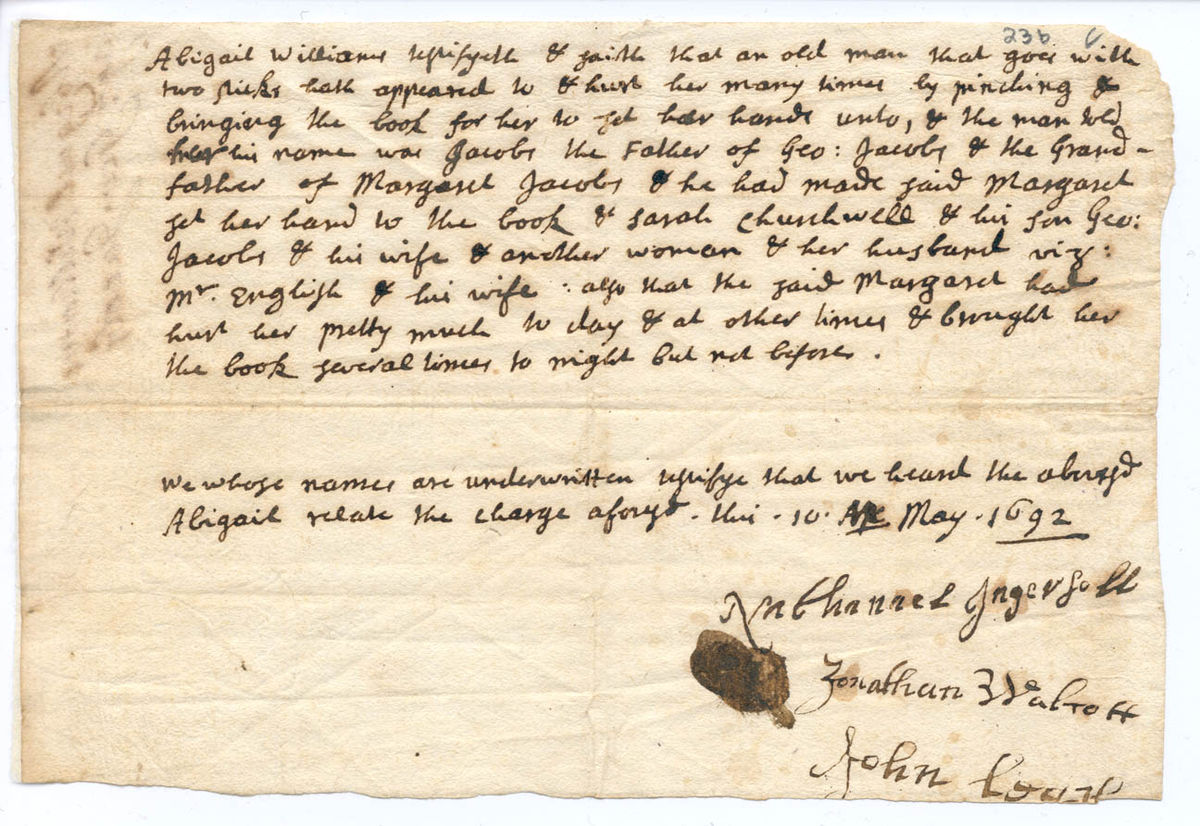 23b
Abigail Williams testifyeth & saith that an old man that goes with
two sticks hath appeared to & hurt her many times by pinching &
bringing the book for her to set her hands unto, & the man told
her his name was Jacobs the Father of Geo: Jacobs & the Grand-
father of Margaret Jacobs & he had made said Margaret
set her hand to the book & Sarah Churchwell & his son Geo:
Jacobs & his wife & another woman & her husband viz:
Mr. English & his wife : also that the said Margaret had
hurt her pretty much to day & at other times & brought her
the book several times to night but not before.
we whose names are underwritten testifye that we heard the abovesd
Abigail relate the charge aforesd. this . 10. May . 1692
Nathanael Ingersoll
Jonathan Walcott
John